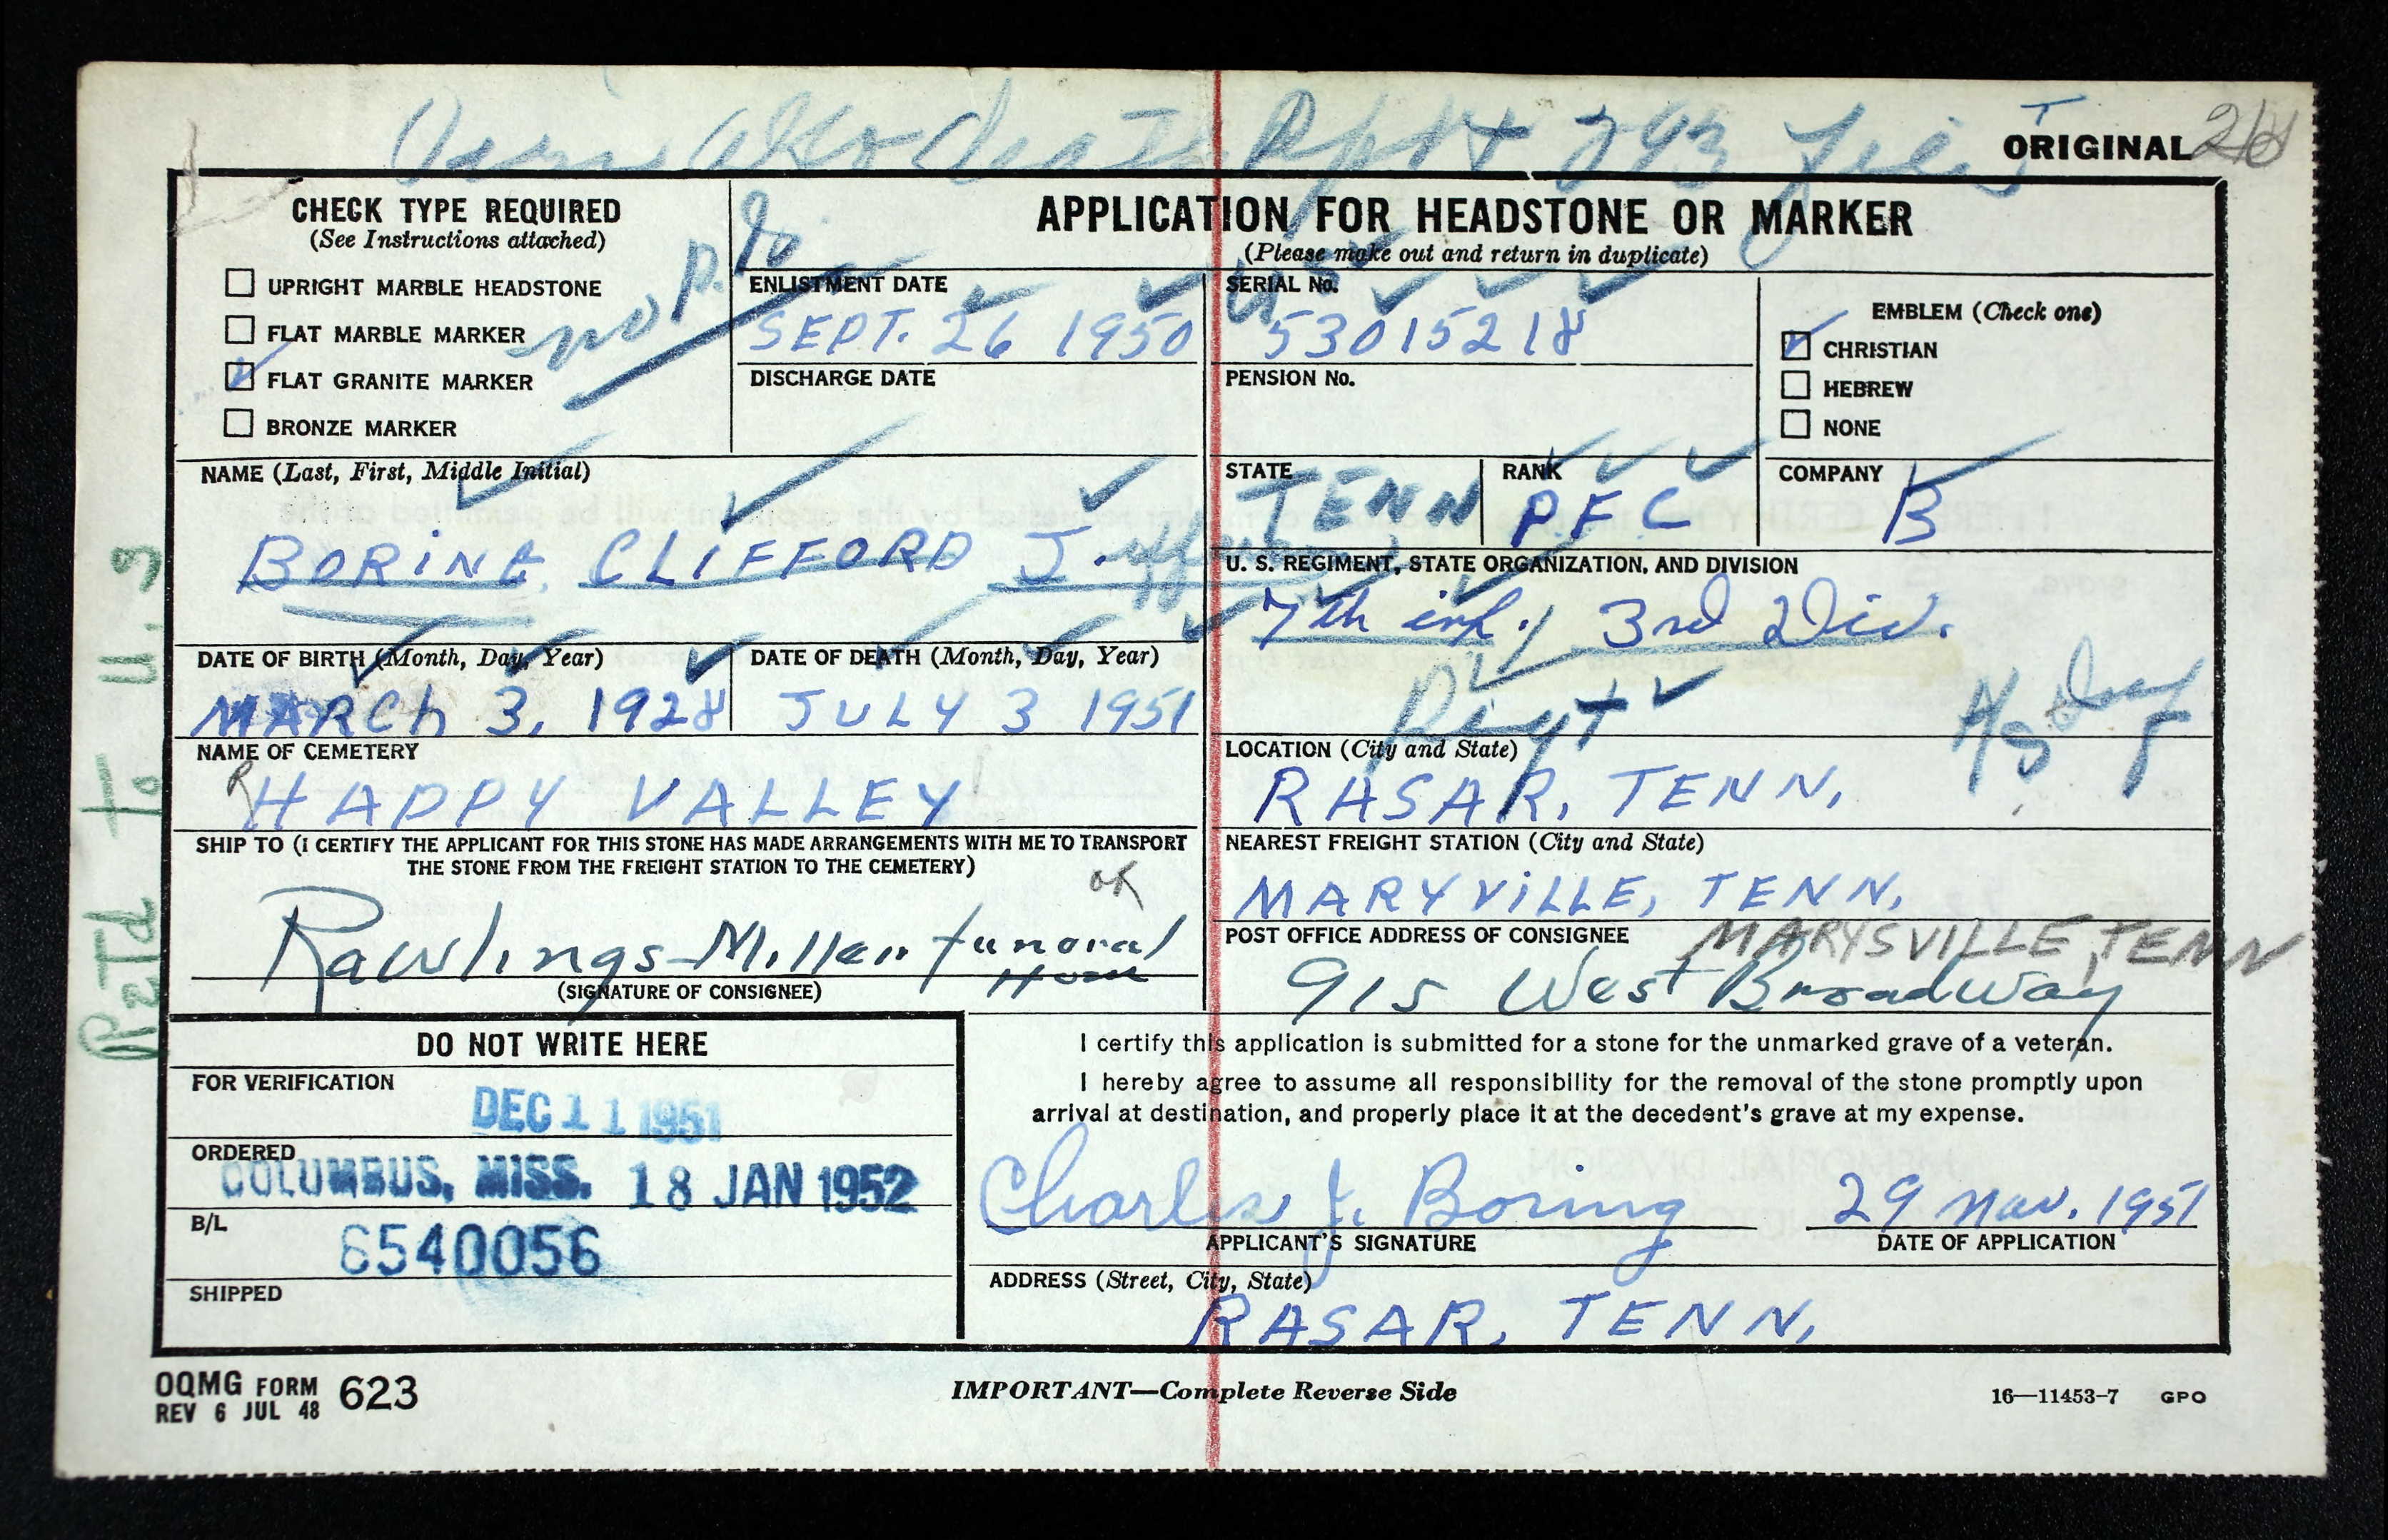 ORIGINAL
CHECK TYPE REQUIRED
(See Instructions attached)
UPRIGHT MARBLE HEADSTONE
FLAT MARBLE MARKER
FLAT GRANITE MARKER
BRONZE MARKER
no p.
APPLICATION FOR HEADSTONE OR MARKER
(Please make out and return in duplicate)
ENLISTMENT DATE
SEPT. 26 1950
DISCHARGE DATE
SERIAL No.
US 53015218
PENSION No.
EMBLEM (Check one)
CHRISTIAN
HEBREW
NONE
NAME (Last, First, Middle Initial)
BORING, CLIFFORD J.
STATE
TENN
RANK
PFC
COMPANY
B
U. S. REGIMENT, STATE ORGANIZATION, AND DIVISION
7th inf. 3rd Div.
Regt
DATE OF BIRTH (Month, Day, Year)
MARCh 3, 1928
DATE OF DEATH (Month, Day, Year)
JULY 3 1951
NAME OF CEMETERY
HAPPY VALLEY
LOCATION (City and State)
RASAR, TENN.
SHIP TO (I CERTIFY THE APPLICANT FOR THIS STONE HAS MADE ARRANGEMENTS WITH ME TO TRANSPORT
THE STONE FROM THE FREIGHT STATION TO THE CEMETERY)
ok
Rawlings-Miller funeral
Home
(SIGNATURE OF CONSIGNEE)
NEAREST FREIGHT STATION (City and State)
MARYVILLE, TENN.
POST OFFICE ADDRESS OF CONSIGNEE
MARYSVILLE, TENN
915 West Broadway
DO NOT WRITE HERE
FOR VERIFICATION
DEC 11 1951
ORDERED
COLUMBUS, MISS. 18 JAN 1952
B/L
6540056
SHIPPED
I certify this application is submitted for a stone for the unmarked grave of a veteran.
I hereby agree to assume all responsibility for the removal of the stone promptly upon
arrival at destination, and properly place it at the decedent's grave at my expense.
Charles J. Boring
29 Nov. 1951
APPLICANT'S SIGNATURE
DATE OF APPLICATION
ADDRESS (Street, City, State)
RASAR, TENN.
OQMG FORM 623
REV 6 JUL 48
IMPORTANT—Complete Reverse Side
16—11453-7 GPO